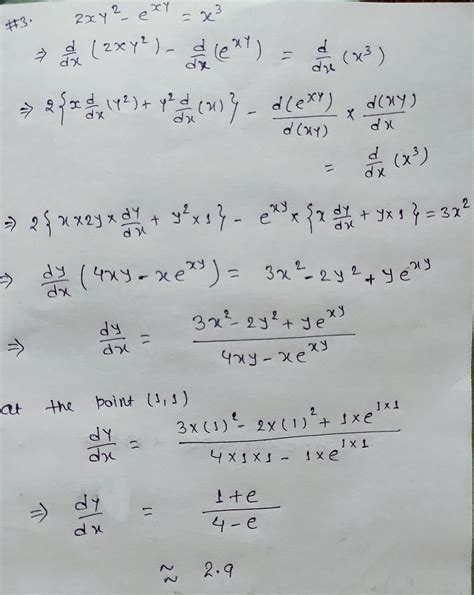 #3. 2xy² - e^xy = x³
⇒ d/dx (2xy²) - d/dx (e^xy) = d/dx (x³)
⇒ 2{x d/dx (y²) + y² d/dx (x)} - d(e^xy)/d(xy) × d(xy)/dx
= d/dx (x³)
⇒ 2{x×2y× dy/dx + y²×1} - e^xy × {x dy/dx + y×1} = 3x²
⇒ dy/dx (4xy - xe^xy) = 3x² - 2y² + ye^xy
⇒ dy/dx = (3x² - 2y² + ye^xy)/(4xy - xe^xy)
at the point (1,1)
dy/dx = (3×(1)² - 2×(1)² + 1×e^1×1)/(4×1×1 - 1×e^1×1)
⇒ dy/dx = (1+e)/(4-e)
≈ 2.9